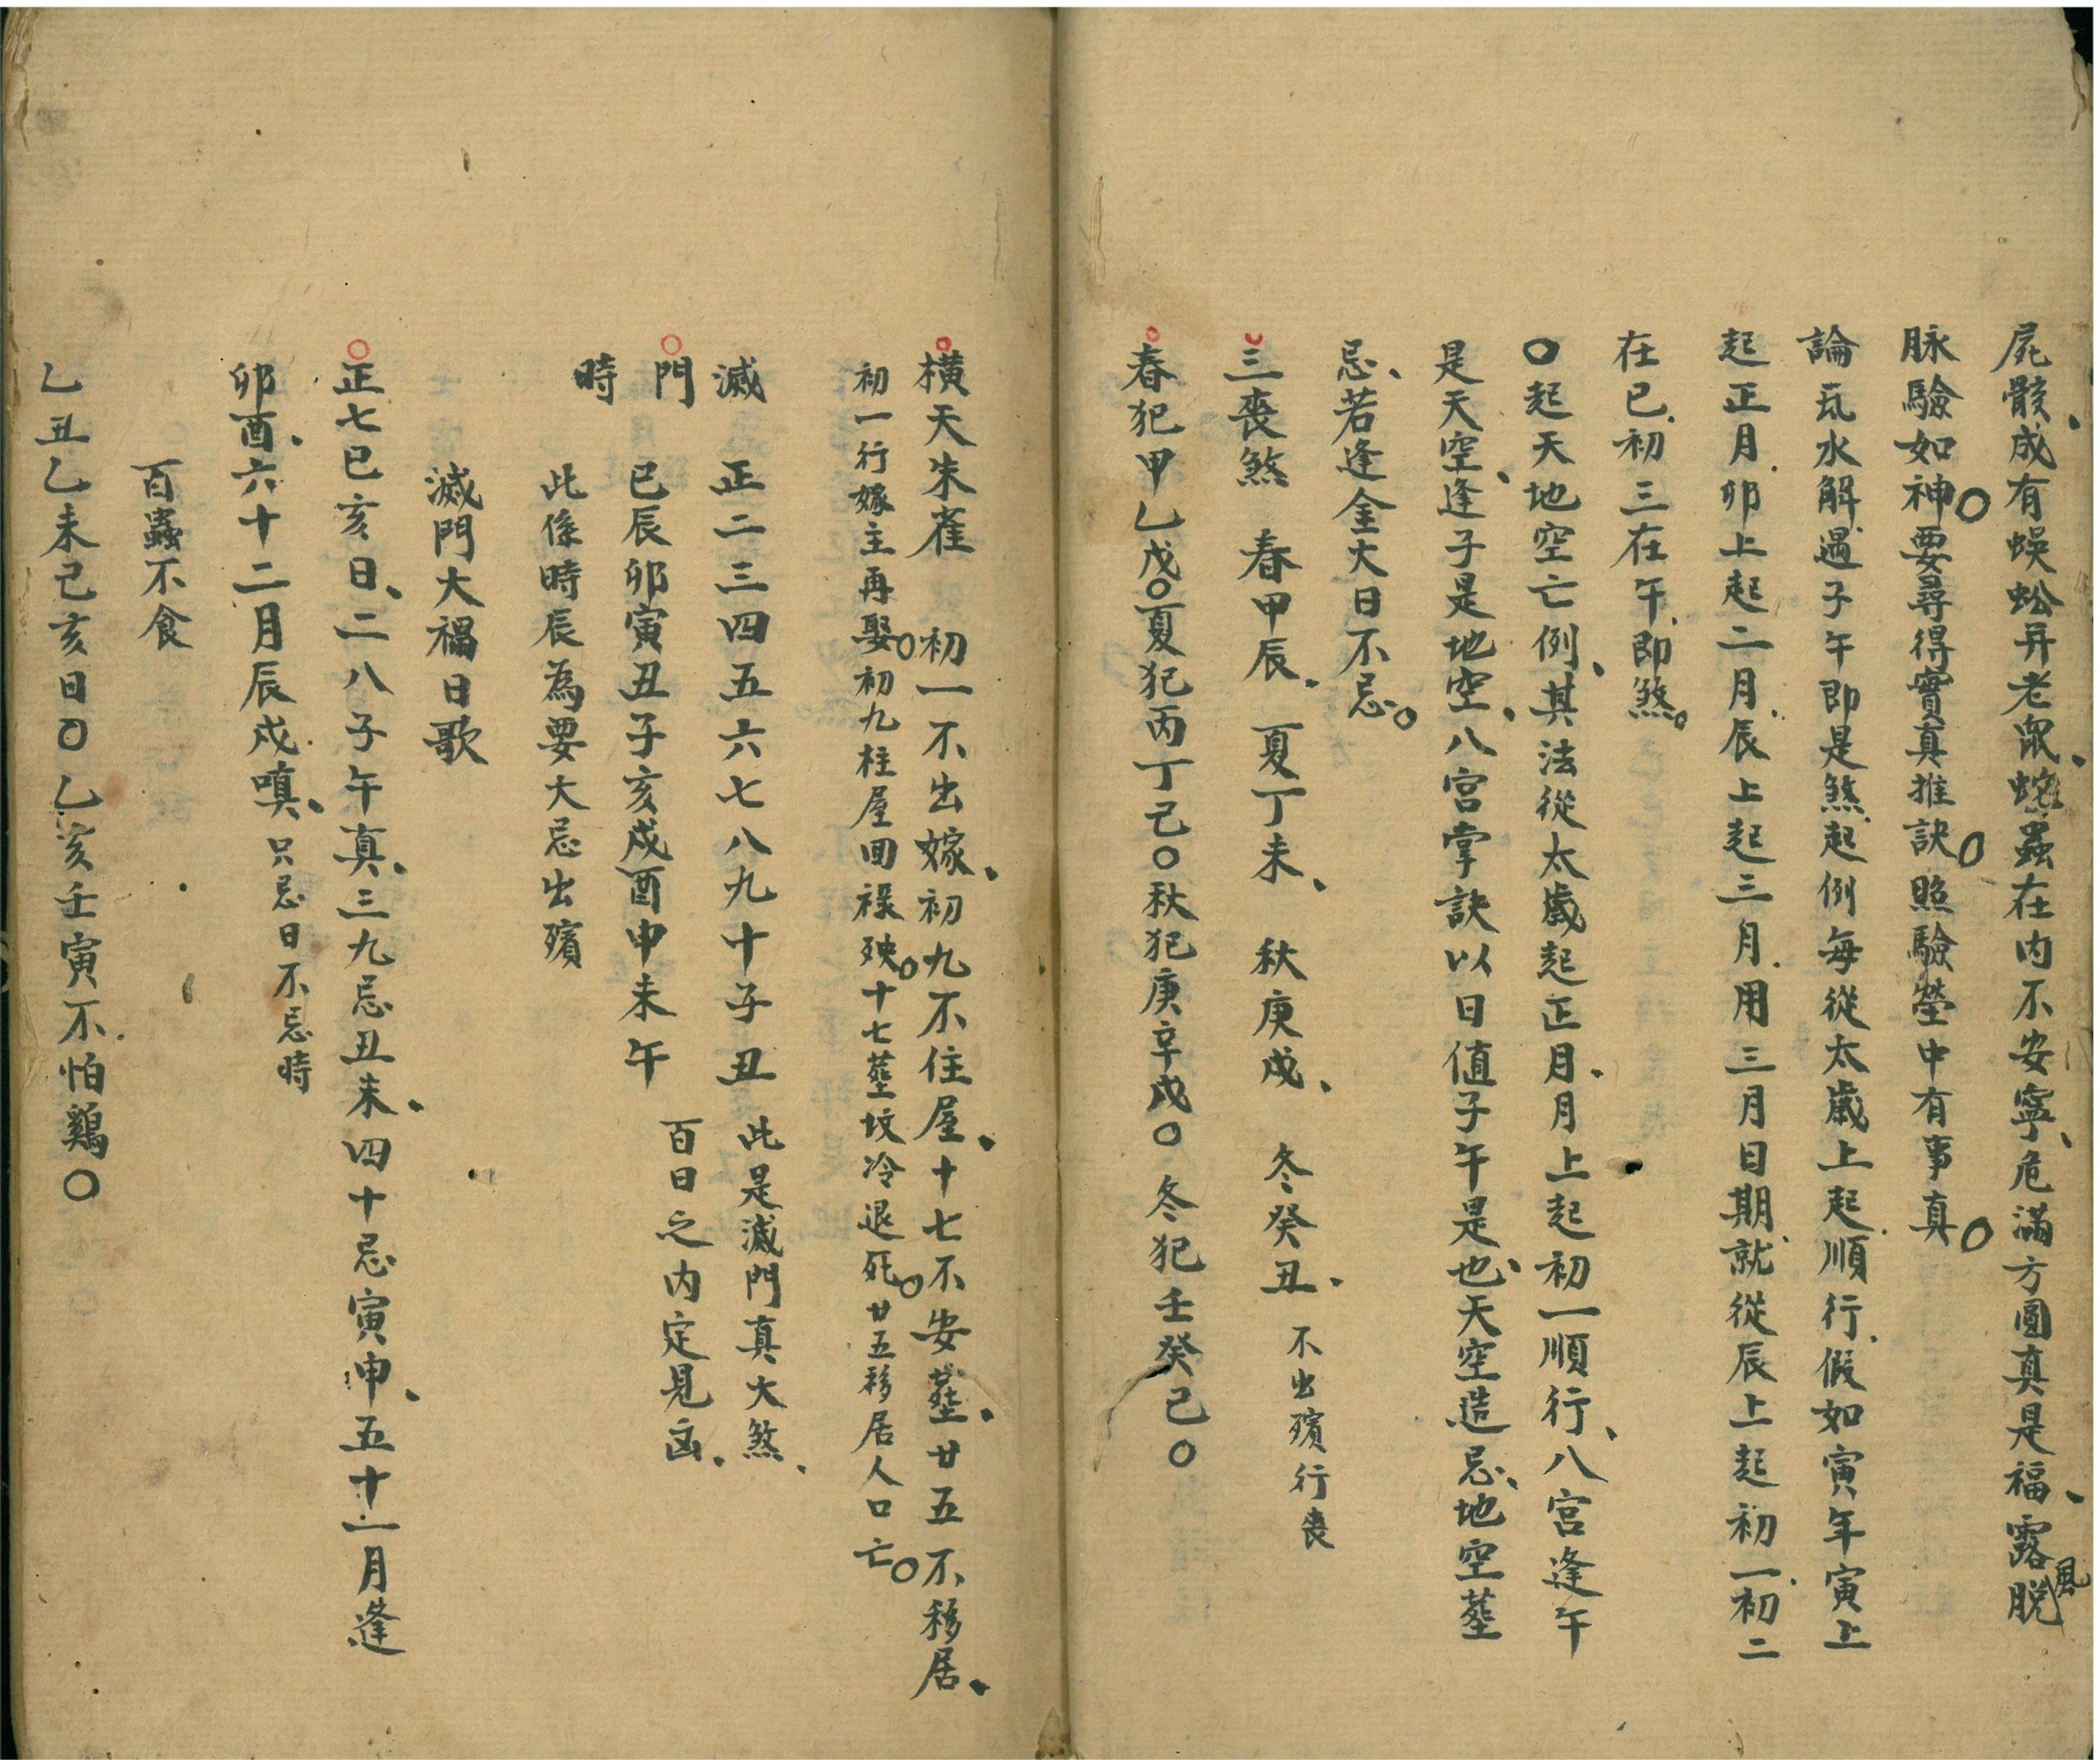 屍骸、成有蜈蚣并老鼠、蛇蟲在内不安寧、危滿方圓真是福、露風脱
脉驗如神○要尋得實真推訣○照驗塋中有事真○
論瓦水解遇子午即是煞起例每從太歲上起順行假如寅年寅上
起正月卯上起二月辰上起三月用三月日期就從辰上起初一初二
在巳初三在午即煞。
○起天地空亡例、其法從太歲起正月、月上起初一順行、八宮逢午
是天空、逢子是地空、八宮掌訣以日值子午是也、天空造忌、地空塟
忌、若逢金火日不忌。
三喪煞 春甲辰、 夏丁未、 秋庚戌、 冬癸丑、 不出殯行喪
春犯甲乙戊○夏犯丙丁己○秋犯庚辛戌○冬犯壬癸己○
横天朱雀 初一不出嫁、初九不住屋、十七不安塟、廿五不移居、
初一行嫁主再娶○初九柱屋回祿殃○十七塟坟冷退死○廿五移居人口亡○
滅 正二三四五六七八九十子丑 此是滅門真大煞、
門 巳辰卯寅丑子亥戌酉申未午 百日之内定見凶、
時 此係時辰為要大忌出殯
滅門大禍日歌
正七巳亥日、二八子午真、三九忌丑未、四十忌寅申、五十一月逢
卯酉、六十二月辰戌嗔、只忌日不忌時
百蟲不食
乙丑乙未己亥日○乙亥壬寅不怕鷄○